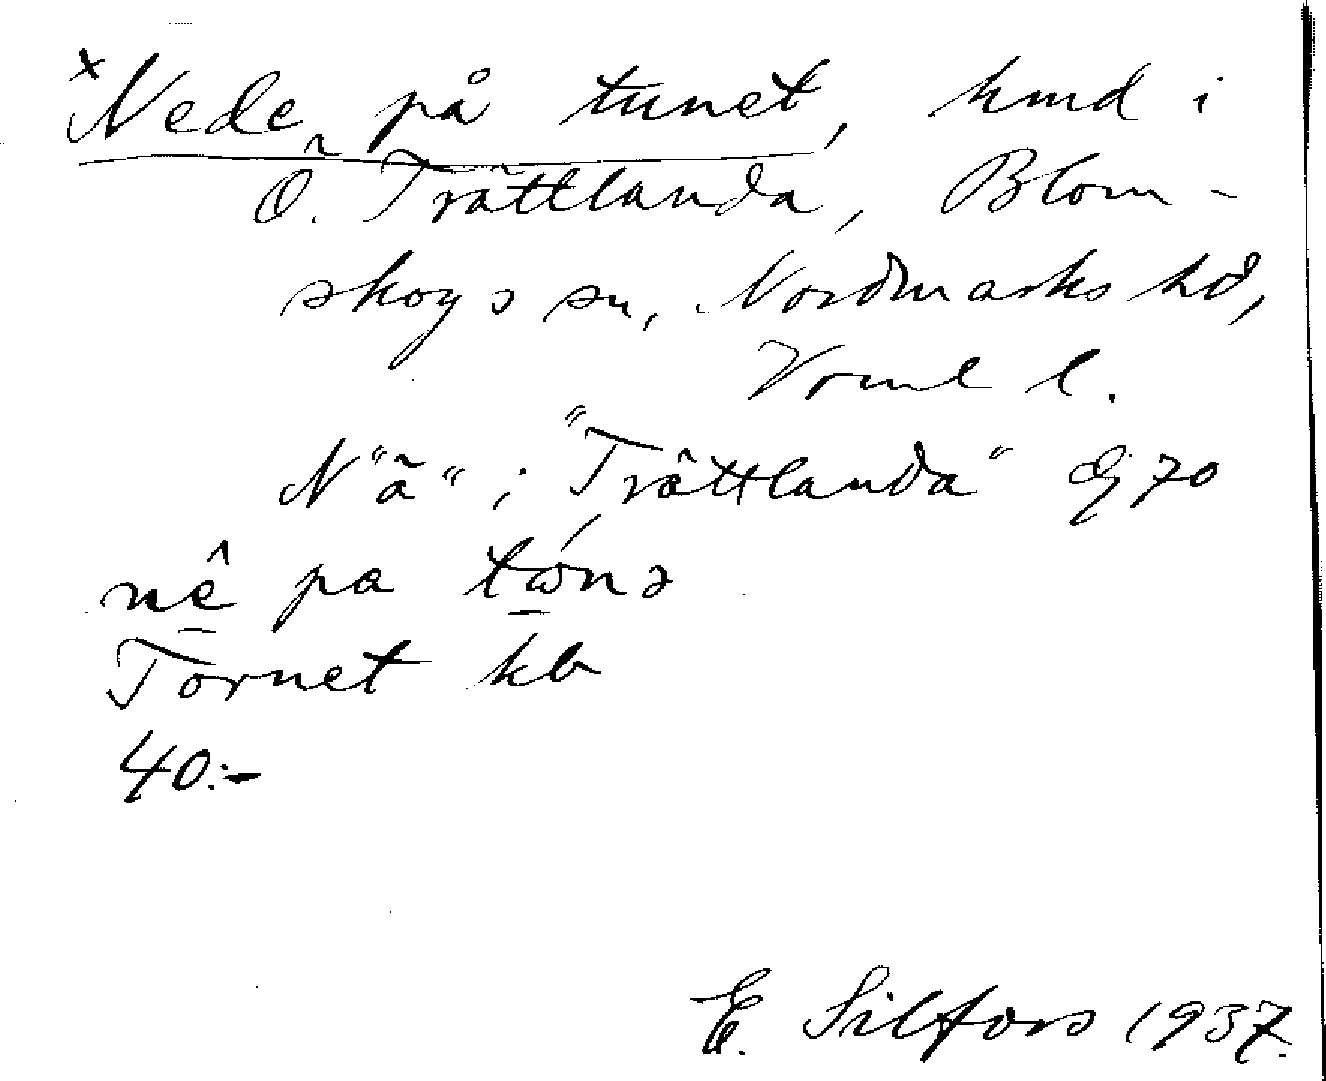 ×Nede på tunet, hmd i
Ö. Trättlanda, Blom-
skogs sn, Nordmarks hd,
Vrml l.
N"ä"; "Trättlanda" Ej 70
nê pa tωnə
Tornet kb
40:-
E. Silfors 1937.